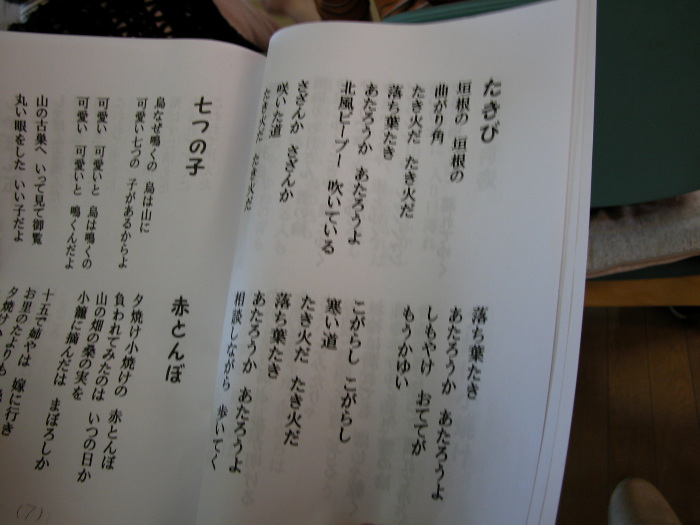 たきび
垣根の　垣根の
曲がり角
たき火だ　たき火だ
落ち葉たき
あたろうか　あたろうよ
北風ピープー　吹いている
さざんか　さざんか
咲いた道
たき火だ　たき火だ
落ち葉たき
あたろうか　あたろうよ
しもやけ　おててが
もうかゆい
こがらし　こがらし
寒い道
たき火だ　たき火だ
落ち葉たき
あたろうか　あたろうよ
相談しながら　歩いてく
七つの子
烏なぜ鳴くの　烏は山に
可愛い七つの　子があるからよ
可愛い　可愛いと　烏は鳴くの
可愛い　可愛いと　鳴くんだよ
山の古巣へ　いって見て御覧
丸い眼をした　いい子だよ
赤とんぼ
夕焼け小焼けの　赤とんぼ
負われてみたのは　いつの日か
山の畑の桑の実を
小籠に摘んだは　まぼろしか
十五で姉やは　嫁に行き
お里のたよりも
夕焼け
(7)